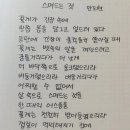 스며드는 것
안도현
꽃게가 간장 속에
반쯤 몸을 담그고 엎드려 있다
등판에 간장이 울컥울컥 쏟아질 때
꽃게는 뱃속의 알을 껴안으려고
꿈틀거리다가 더 낮게
더 바닥 쪽으로 웅크렸으리라
버둥거렸으리라
버둥거리다가 어찌할 수 없어서
살 속으로 스며드는 것을
한때의 어스름을
꽃게는 천천히 받아들였으리라
껍질이 먹먹해지기 전에